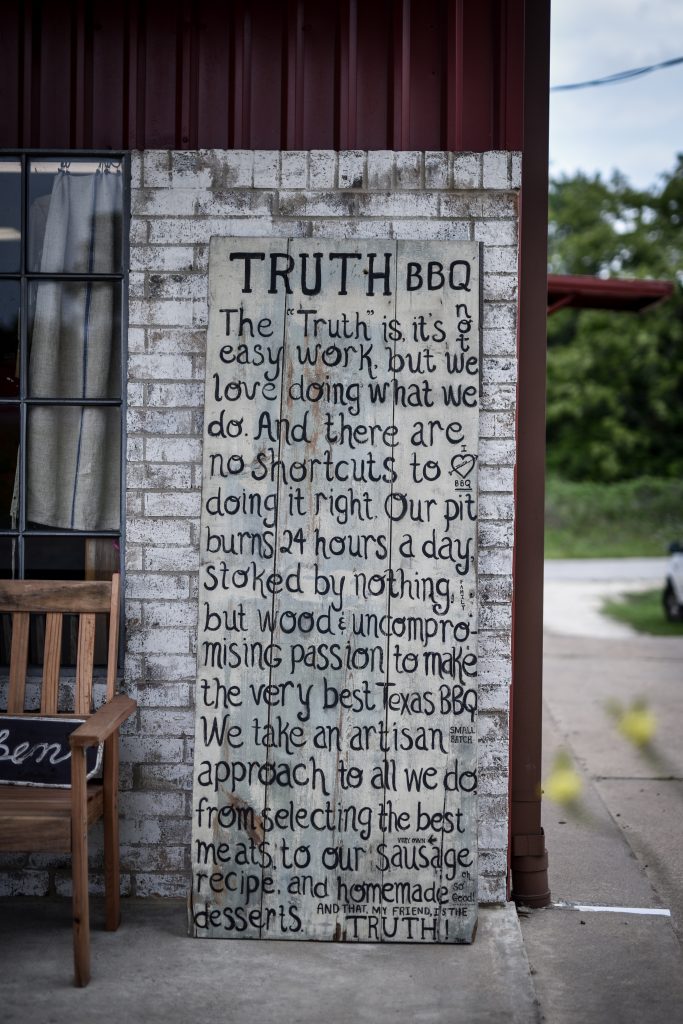 TRUTH BBQ
The "Truth" is, it's not
easy work, but we
love doing what we
do. And there are
no shortcuts to I
BBQ
doing it right. Our pit
burns 24 hours a day,
stoked by nothing,
but wood & uncompro-
mising passion to make
the very best Texas BBQ
We take an artisan SMALL
BATCH
approach to all we do
from selecting the best
meats, to our VERY OWN sausage
recipe, and homemade oh
so
Good!
desserts. AND THAT, MY FRIEND, IS THE
TRUTH!
ben